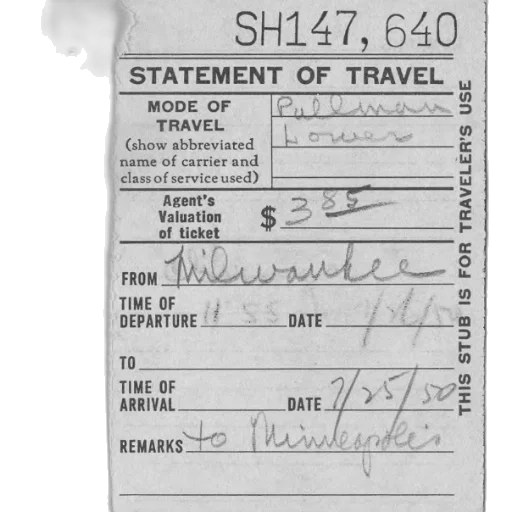 SH147, 640
STATEMENT OF TRAVEL
MODE OF TRAVEL
(show abbreviated
name of carrier and
class of service used)
Pullman
Lower
Agent's
Valuation
of ticket
$ 3 85
FROM Milwaukee
TIME OF
DEPARTURE 11 55 DATE
TO
TIME OF
ARRIVAL DATE 7/25/50
REMARKS to Minneapolis
THIS STUB IS FOR TRAVELER'S USE